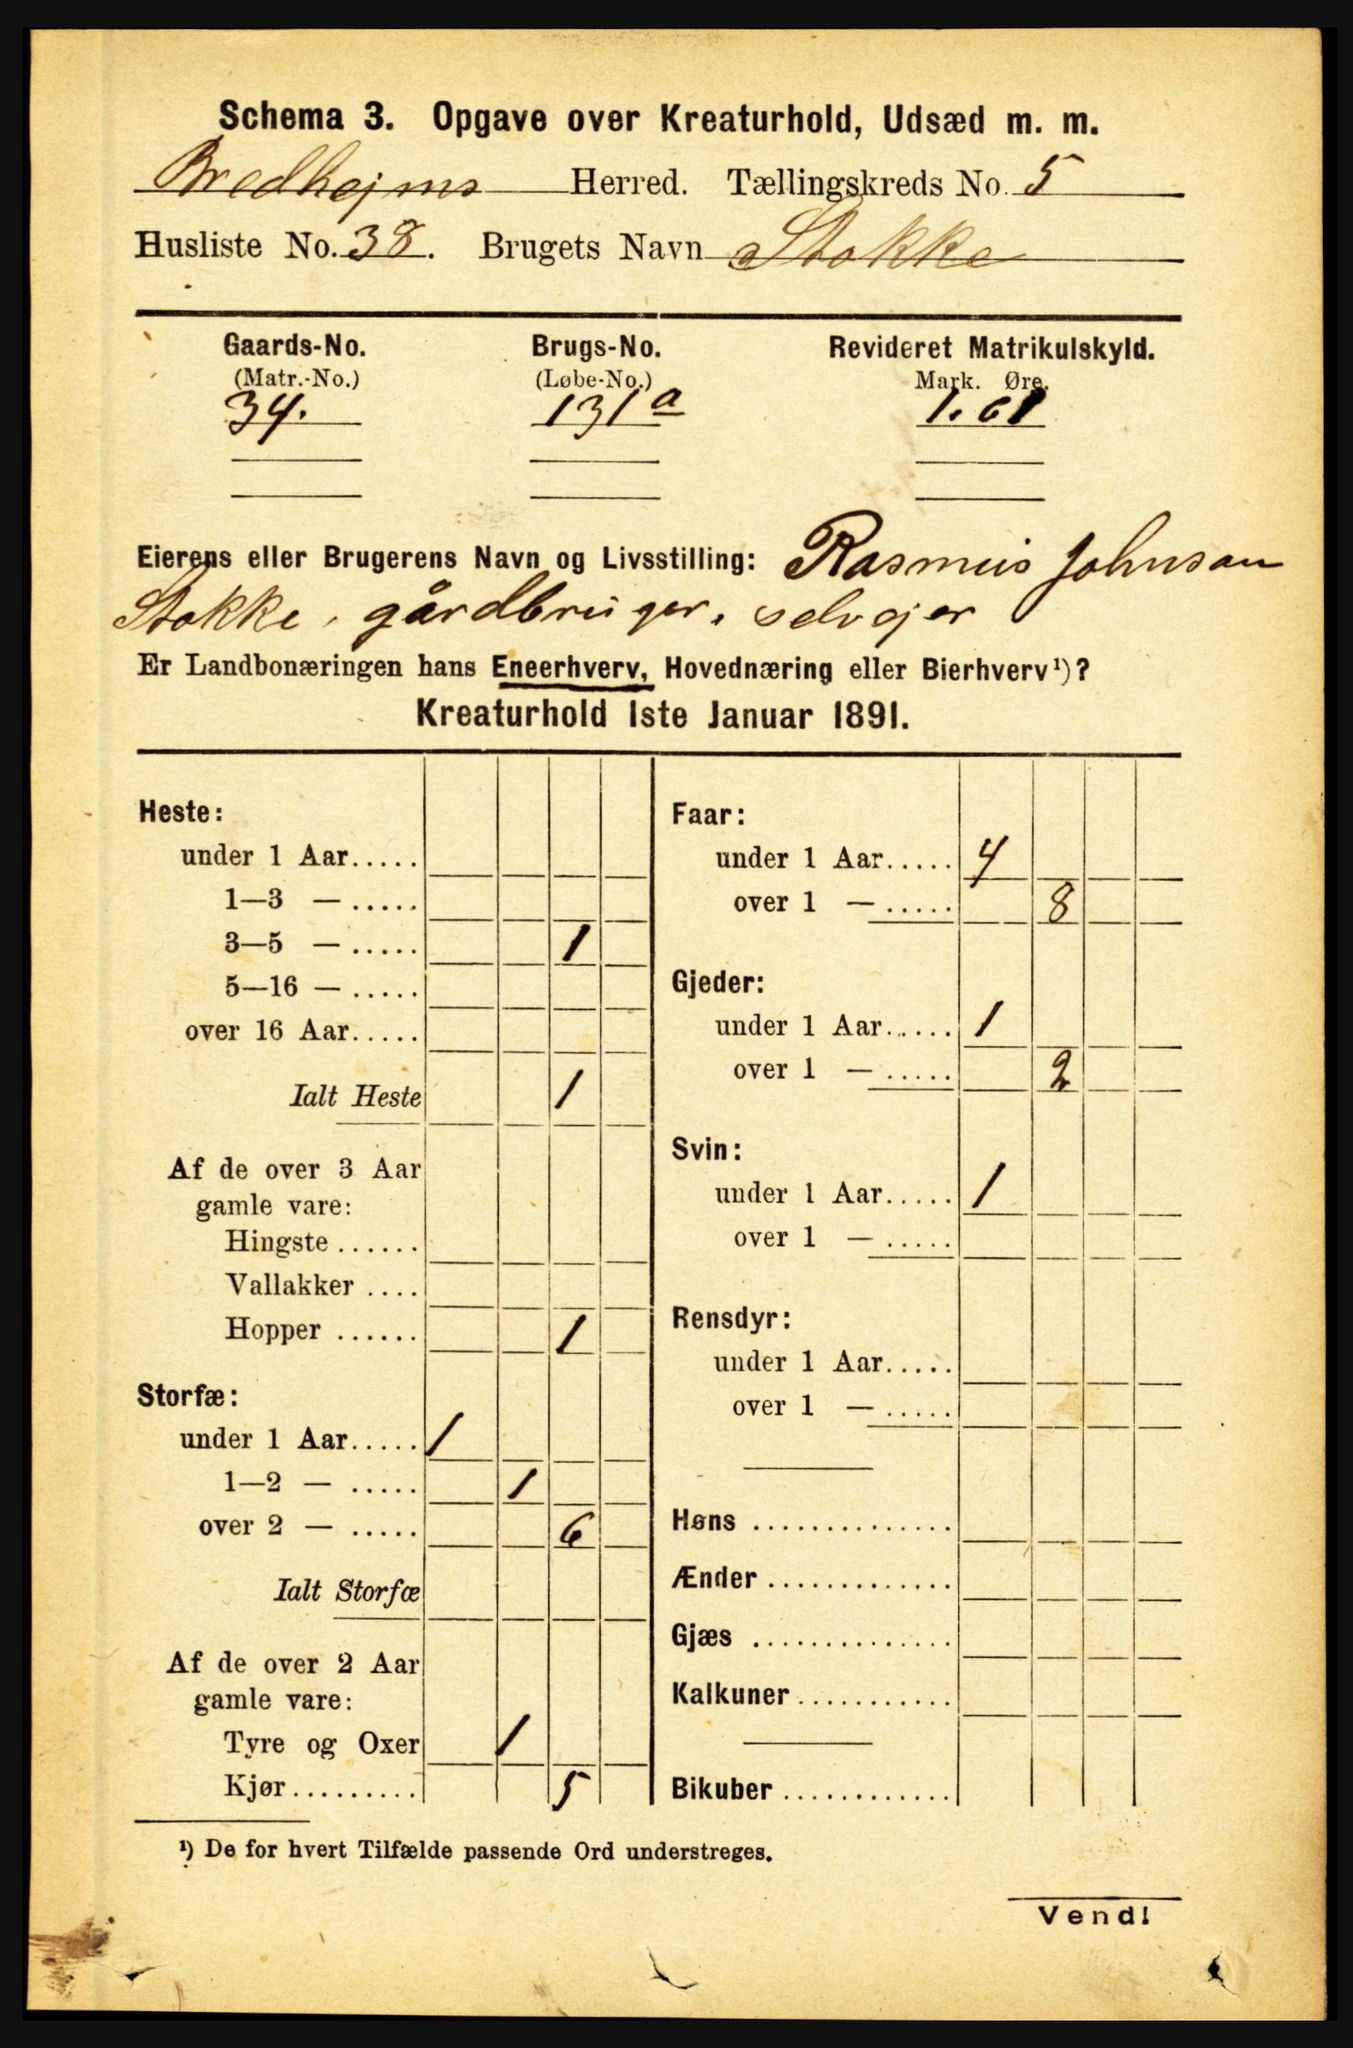 Schema 3. Opgave over Kreaturhold, Udsæd m. m.
Bredhejms Herred. Tællingskreds No. 5
Husliste No. 38. Brugets Navn Stokke
Gaards-No. Brugs-No. Revideret Matrikulskyld.
(Matr.-No.) (Løbe-No.) Mark. Øre.
34. 131 a 1.61
Eierens eller Brugerens Navn og Livsstilling: Rasmus Johnsan
Stokke, gårdbruger, selvejer
Er Landbonæringen hans Eneerhverv, Hovednæring eller Bierhverv¹)?
Kreaturhold 1ste Januar 1891.
Heste:
under 1 Aar.....
1—3 — .....
3—5 — ..... 1
5—16 — .....
over 16 Aar.....
Ialt Heste 1
Af de over 3 Aar
gamle vare:
Hingste ......
Vallakker ....
Hopper ...... 1
Storfæ:
under 1 Aar..... 1
1—2 — ..... 1
over 2 — ..... 6
Ialt Storfæ
Af de over 2 Aar
gamle vare:
Tyre og Oxer 1
Kjør......... 5
Faar:
under 1 Aar..... 4
over 1 — ..... 8
Gjeder:
under 1 Aar..... 1
over 1 — ..... 2
Svin:
under 1 Aar..... 1
over 1 — .....
Rensdyr:
under 1 Aar.....
over 1 — .....
Høns ..............
Ænder .............
Gjæs ..............
Kalkuner...........
Bikuber ............
¹) De for hvert Tilfælde passende Ord understreges.
Vend!